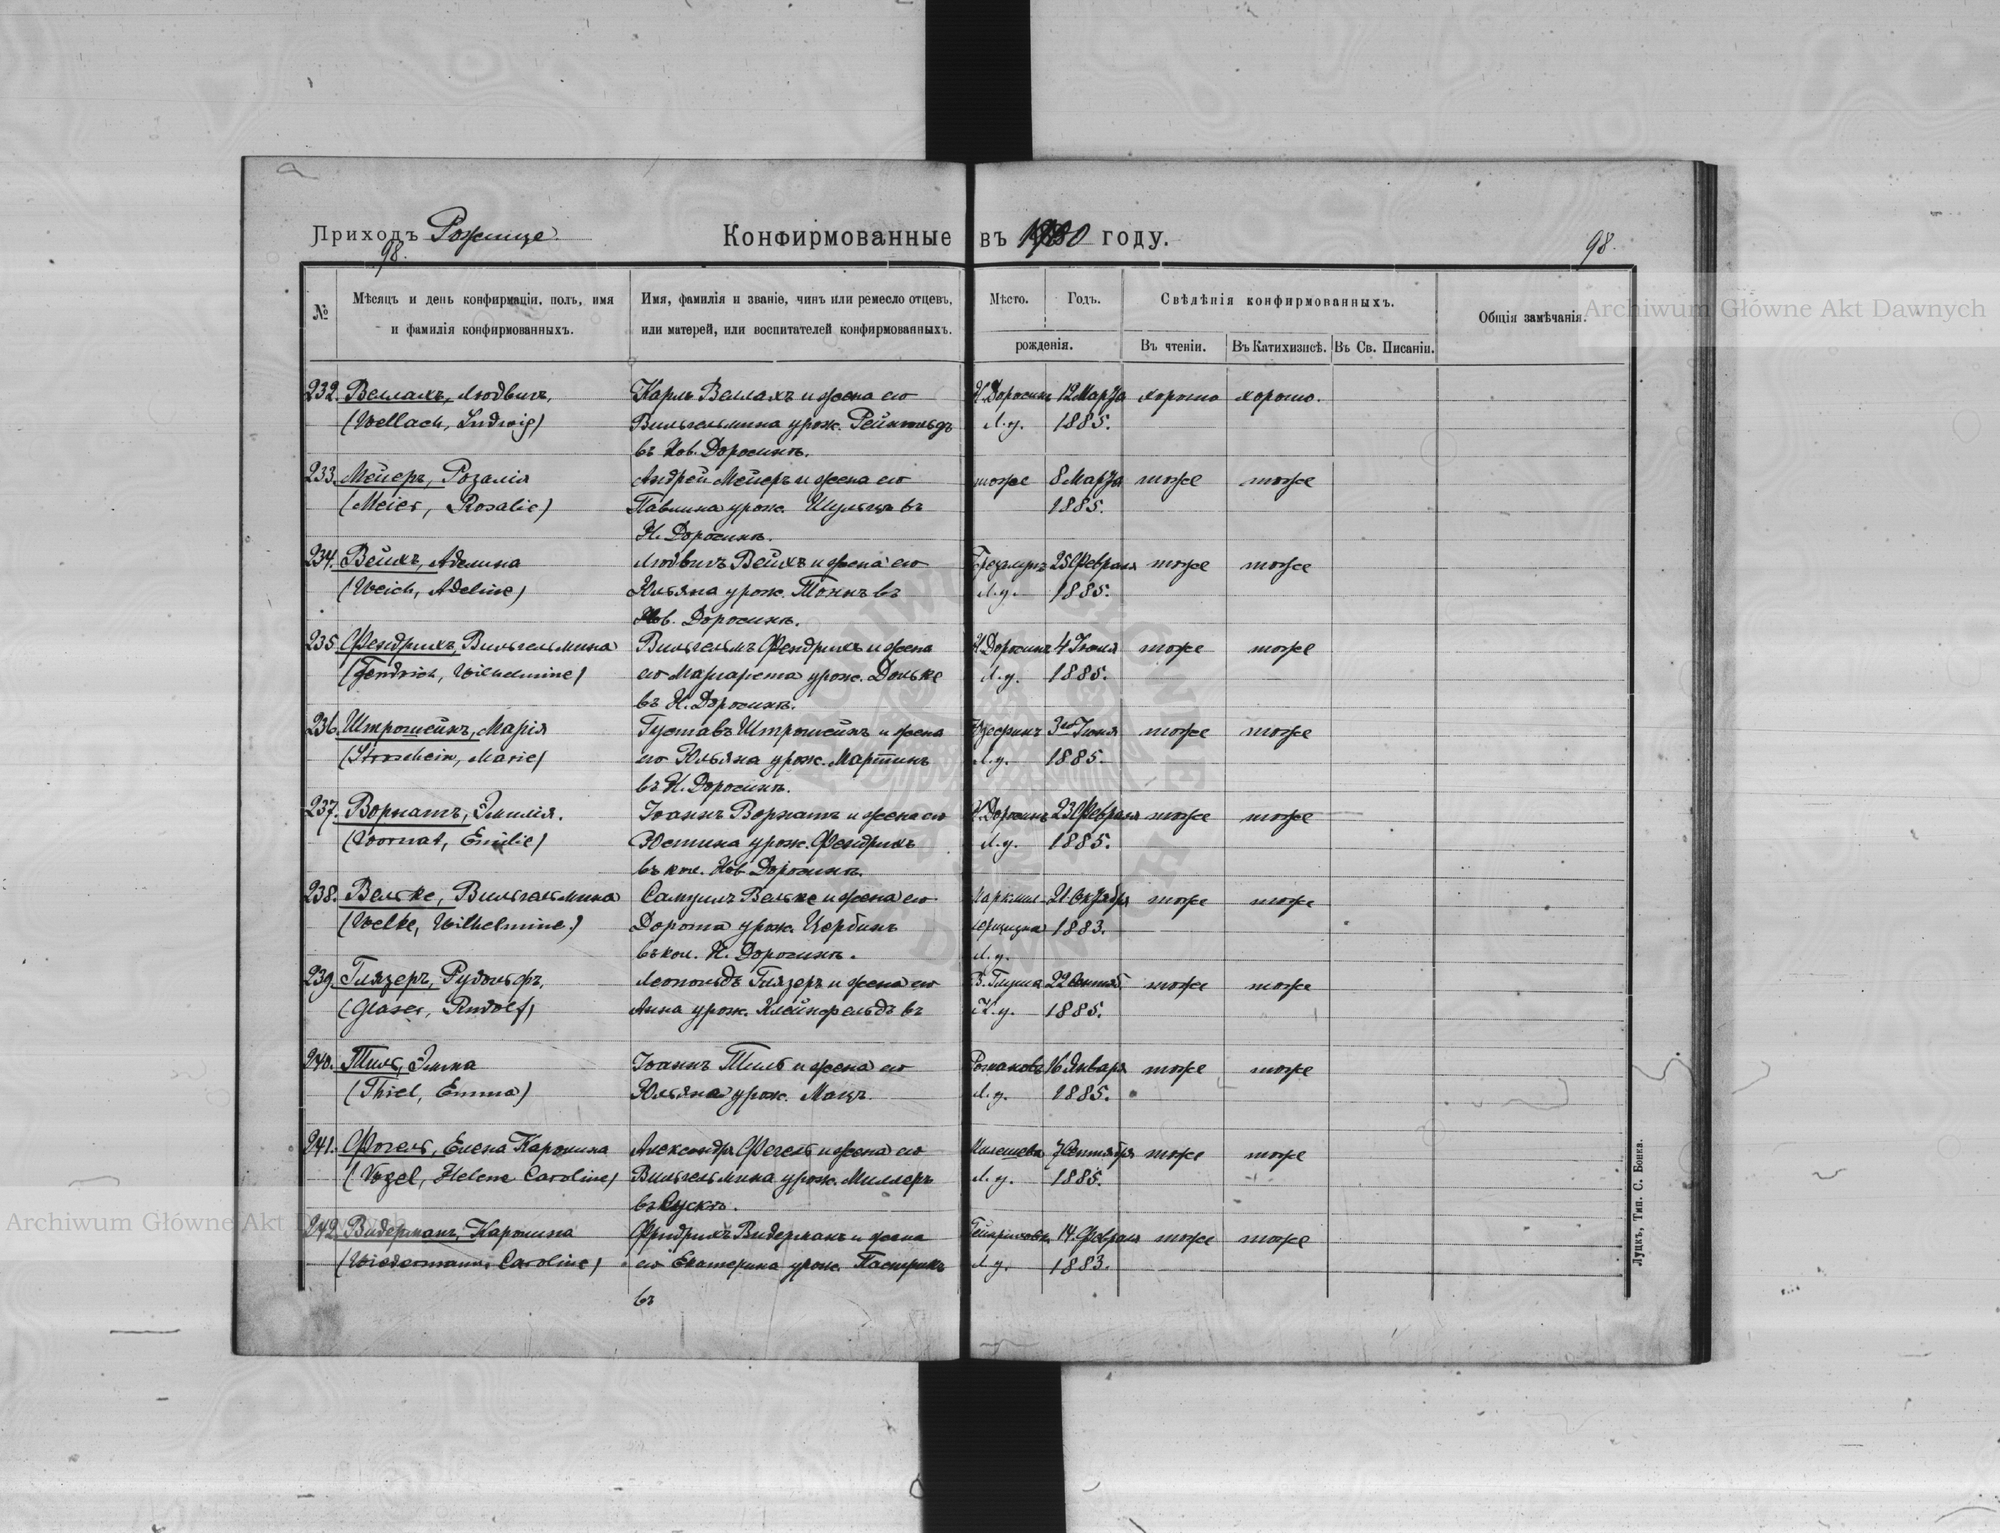 Приходъ Рожище.
Конфирмованные въ 1900 году.
98.
98.
№
Мѣсяцъ и день конфирмаціи, полъ, имя
и фамилія конфирмованныхъ.
Имя, фамилія и званіе, чинъ или ремесло отцевъ,
или матерей, или воспитателей конфирмованныхъ.
Мѣсто.
Годъ.
рожденія.
Свѣдѣнія конфирмованныхъ.
Въ чтеніи.
Въ Катихизисѣ.
Въ Св. Писаніи.
Общія замѣчанія.
232. Веллахъ, Людвигъ, Карлъ Веллахъ и жена его Н. Доросинъ 12 Марта хорошо хорошо.
(Wellach, Ludwig) Вильгельмина урож. Рейнгольдъ Л. у. 1885.
въ Нов. Доросинѣ.
233. Мейеръ, Розалія Андрей Мейеръ и жена его тоже 8 Марта тоже тоже
(Meier, Rosalie) Павлина урож. Шульцъ въ 1885.
Н. Доросинѣ.
234. Вейхъ, Аделина Людвигъ Вейхъ и жена его 25 Февраля тоже тоже
(Weich, Adeline) Юльяна урож. Тоннъ въ Л. у. 1885.
Нов. Доросинѣ.
235. Фендрихъ, Вильгельмина Вильгельмъ Фендрихъ и жена Н. Доросинъ 4 Іюня тоже тоже
(Fendrich, Wilhelmine) его Маргарета урож. Дольке Л. у. 1885.
въ Н. Доросинѣ.
236. Штрошейнъ, Марія Густавъ Штрошейнъ и жена 3го Іюня тоже тоже
(Stroschein, Marie) его Юльяна урож. Мартинъ Л. у. 1885.
въ Н. Доросинѣ.
237. Ворнатъ, Эмилія. Іоаннъ Ворнатъ и жена его Н. Доросинъ 23 Февраля тоже тоже
(Wornat, Emilie) Юстина урож. Фендрихъ Л. у. 1885.
въ кол. Нов. Доросинѣ.
238. Вельке, Вильгельмина Самуилъ Вельке и жена его 21 Октября тоже тоже
(Welke, Wilhelmine) Дорота урож. Цербинъ 1883.
въ кол. Н. Доросинѣ. Л. у.
239. Глязеръ, Рудольфъ, Леопольдъ Глязеръ и жена его В. Глуша 22 Сентяб. тоже тоже
(Glaser, Rudolf) Анна урож. Клейнфельдъ въ К. у. 1885.
240. Тиль, Эмма Іоаннъ Тиль и жена его Романовъ 16 Января тоже тоже
(Thiel, Emma) Юльяна урож. Мацъ. Л. у. 1885.
241. Фогель, Елена Каролина Александръ Фогель и жена его 7 Сентября тоже тоже
(Vogel, Helene Caroline) Вильгельмина урож. Миллеръ Л. у. 1885.
въ Лускѣ.
242. Видерманъ, Каролина Фридрихъ Видерманъ и жена 14 Февраля тоже тоже
(Wiedermann, Caroline) его Екатерина урож. Л. у. 1883.
въ
Луцкъ, Тип. С. Бонка.
Archiwum Główne Akt Dawnych
Archiwum Główne Akt Dawnych